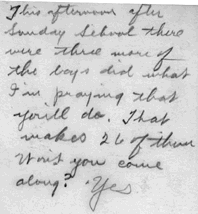 This afternoon after
Sunday School there
were three more of
the boys did what
I'm praying that
you'll do. That
makes 26 of them
Won't you come
along? Yes